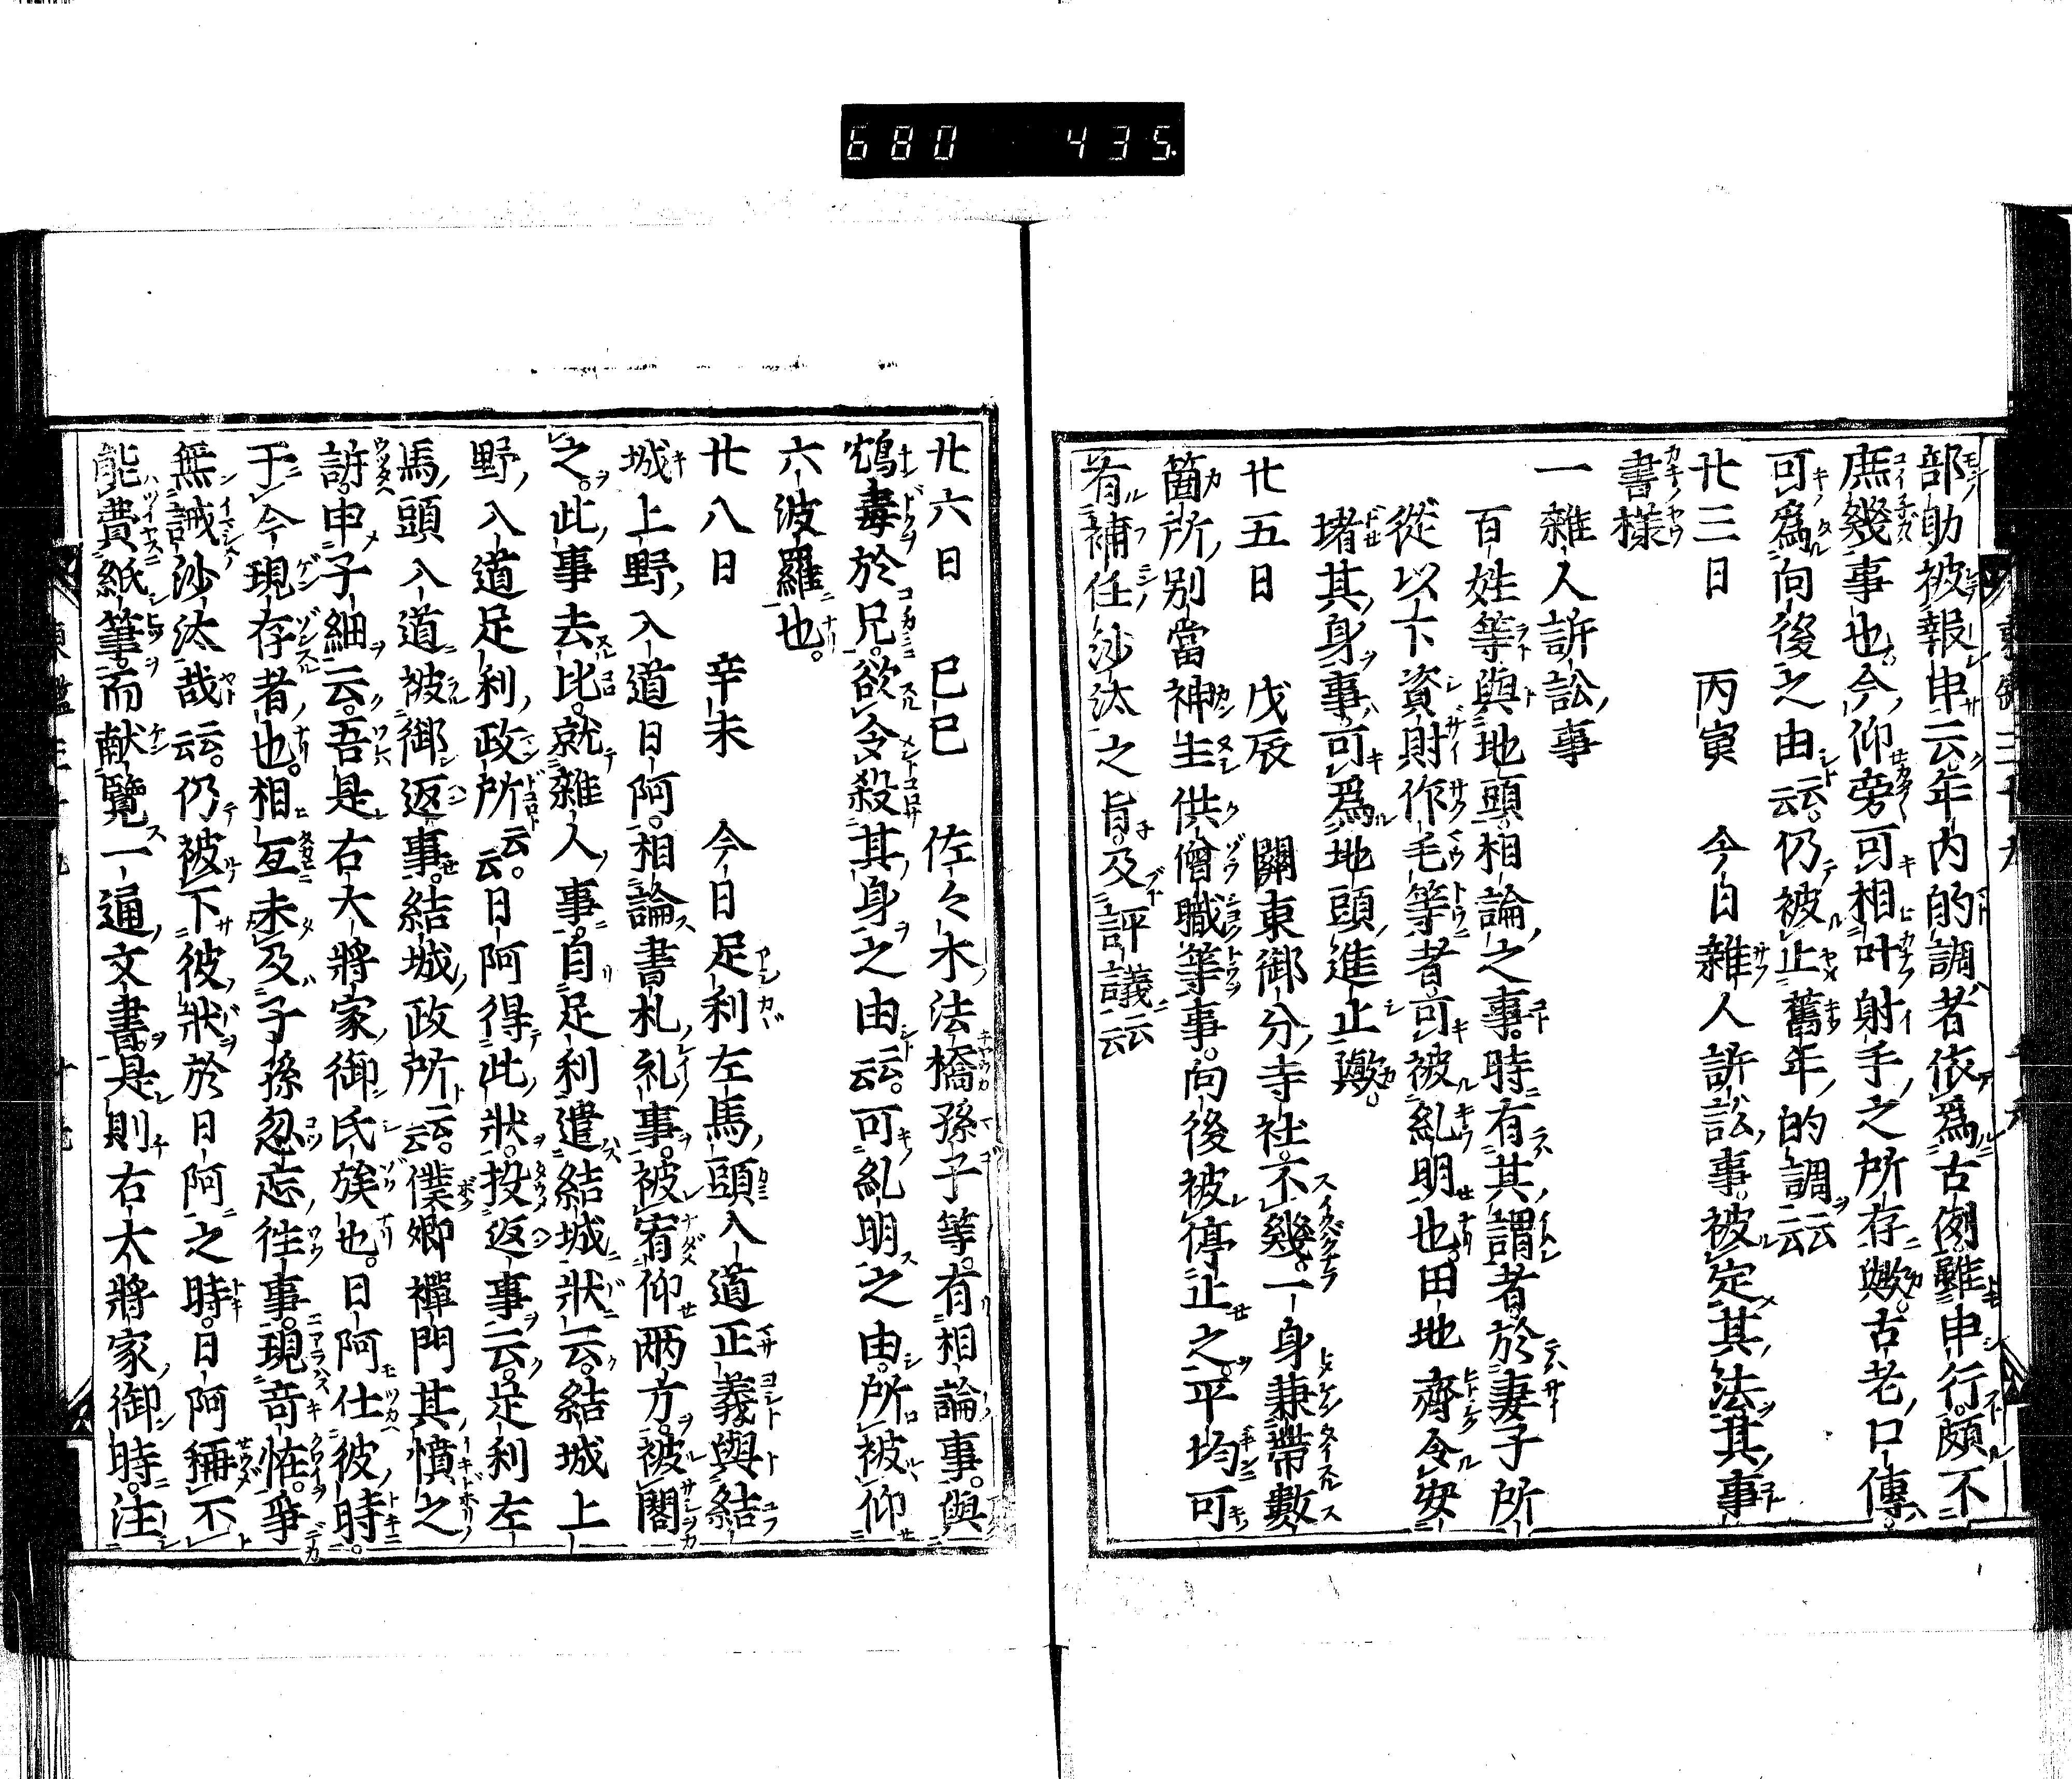 680 435
部助被報申云年内的調者依爲古例雖申行頗不
庶幾事也今仰旁可相叶射手之所存歟古老口傳
可爲向後之由云云仍被止舊年的調云云
廿三日 丙寅 今日雜人訴訟事被定其法其事
書樣
一雜人訴訟事
百姓等與地頭相論之事時有其謂者於妻子所
從以下資財作毛等者可被糺明也田地齊令安
堵其身事可爲地頭進止歟
廿五日 戊辰 關東御分寺社不幾一身兼帶數
箇所別當神主供僧職等事向後被停止之平均可
有補任沙汰之旨及評議云云
廿六日 巳巳 佐々木法橋孫子等有相論事與
鴆毒於兄欲令殺其身之由云云可糺明之由所被仰
六波羅也
廿八日 辛未 今日足利左馬頭入道正義與結
城上野入道日阿相論書札礼事被宥仰兩方被閣
之此事去比就雜人事自足利遣結城狀云結城上
野入道足利政所云云日阿得此狀投返事云足利左
馬頭入道被御返事結城政所云云僕卿禪門其憤之
訴申子細云吾是右大將家御氏族也日阿仕彼時
于今現存者也相互未及子孫忽忘徃事現奇恠爭
無誡沙汰哉云云仍被下彼狀於日阿之時日阿稱不
能費紙筆而献覽一通文書是則右大將家御時注